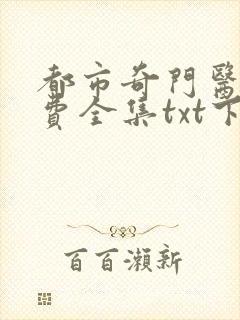 都市奇門醫
費全集txt下
百百瀨新